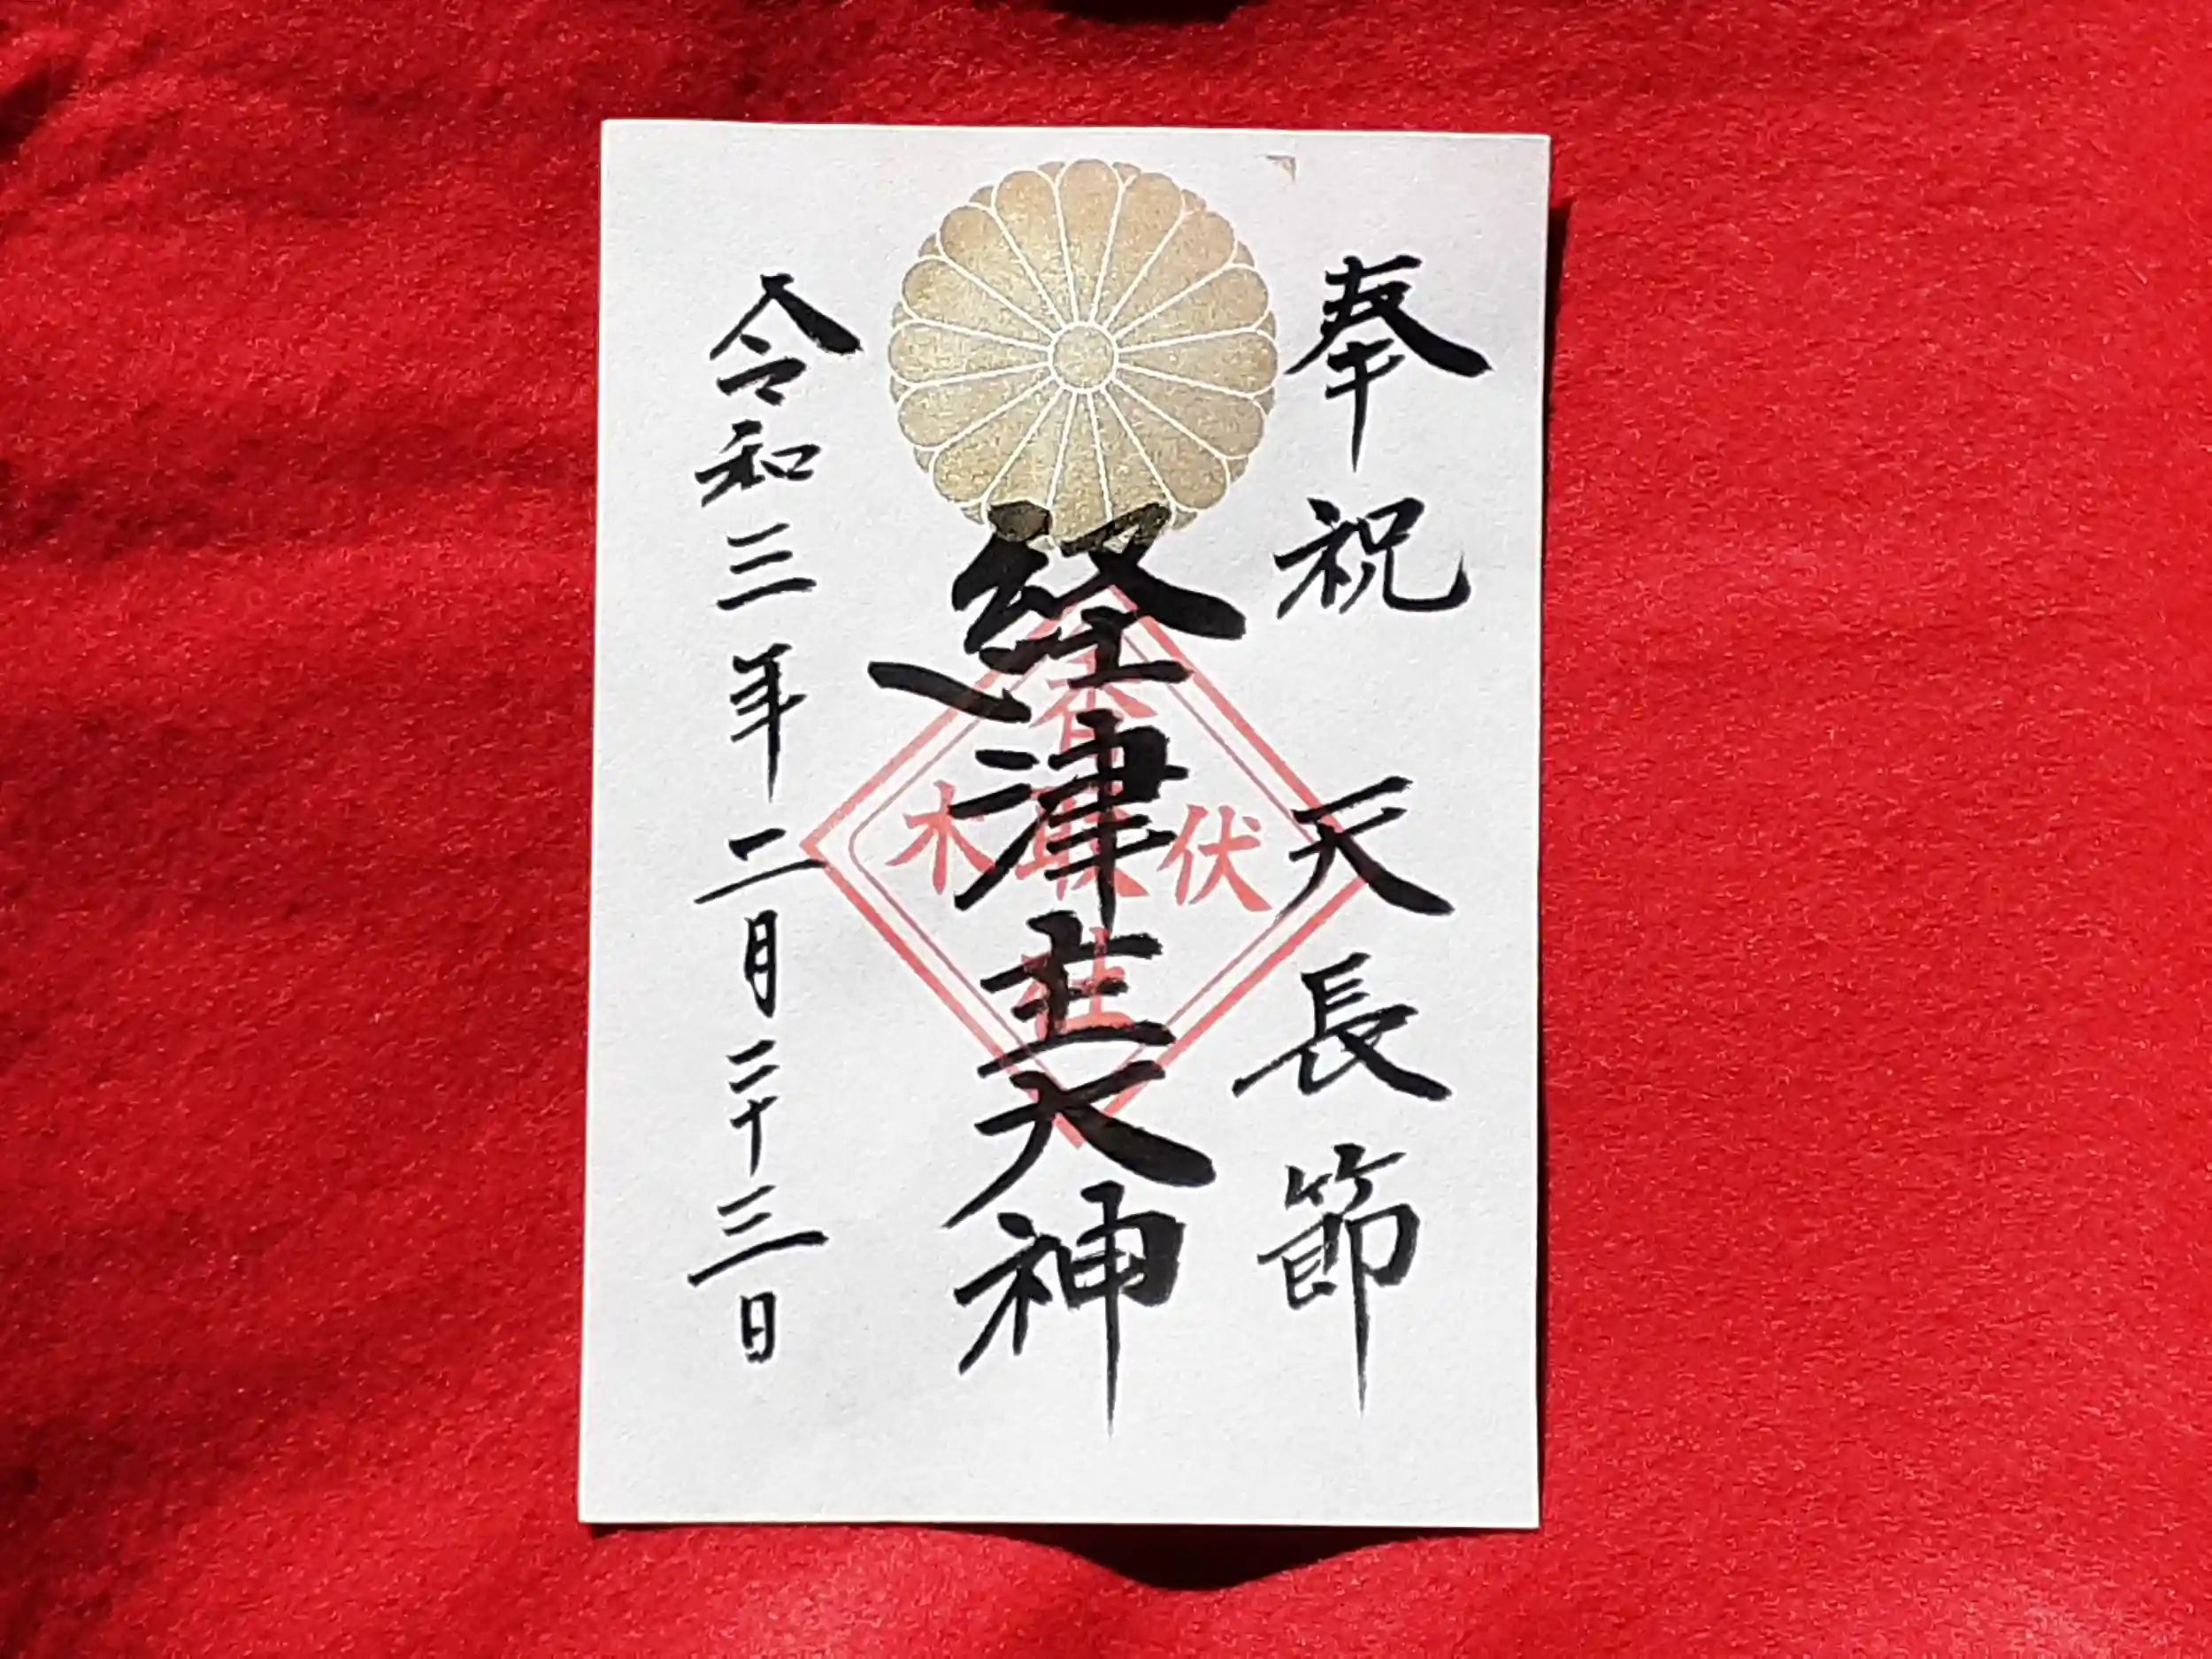 奉祝 天長節
経津主大神
香取社
伏木
令和三年二月二十三日